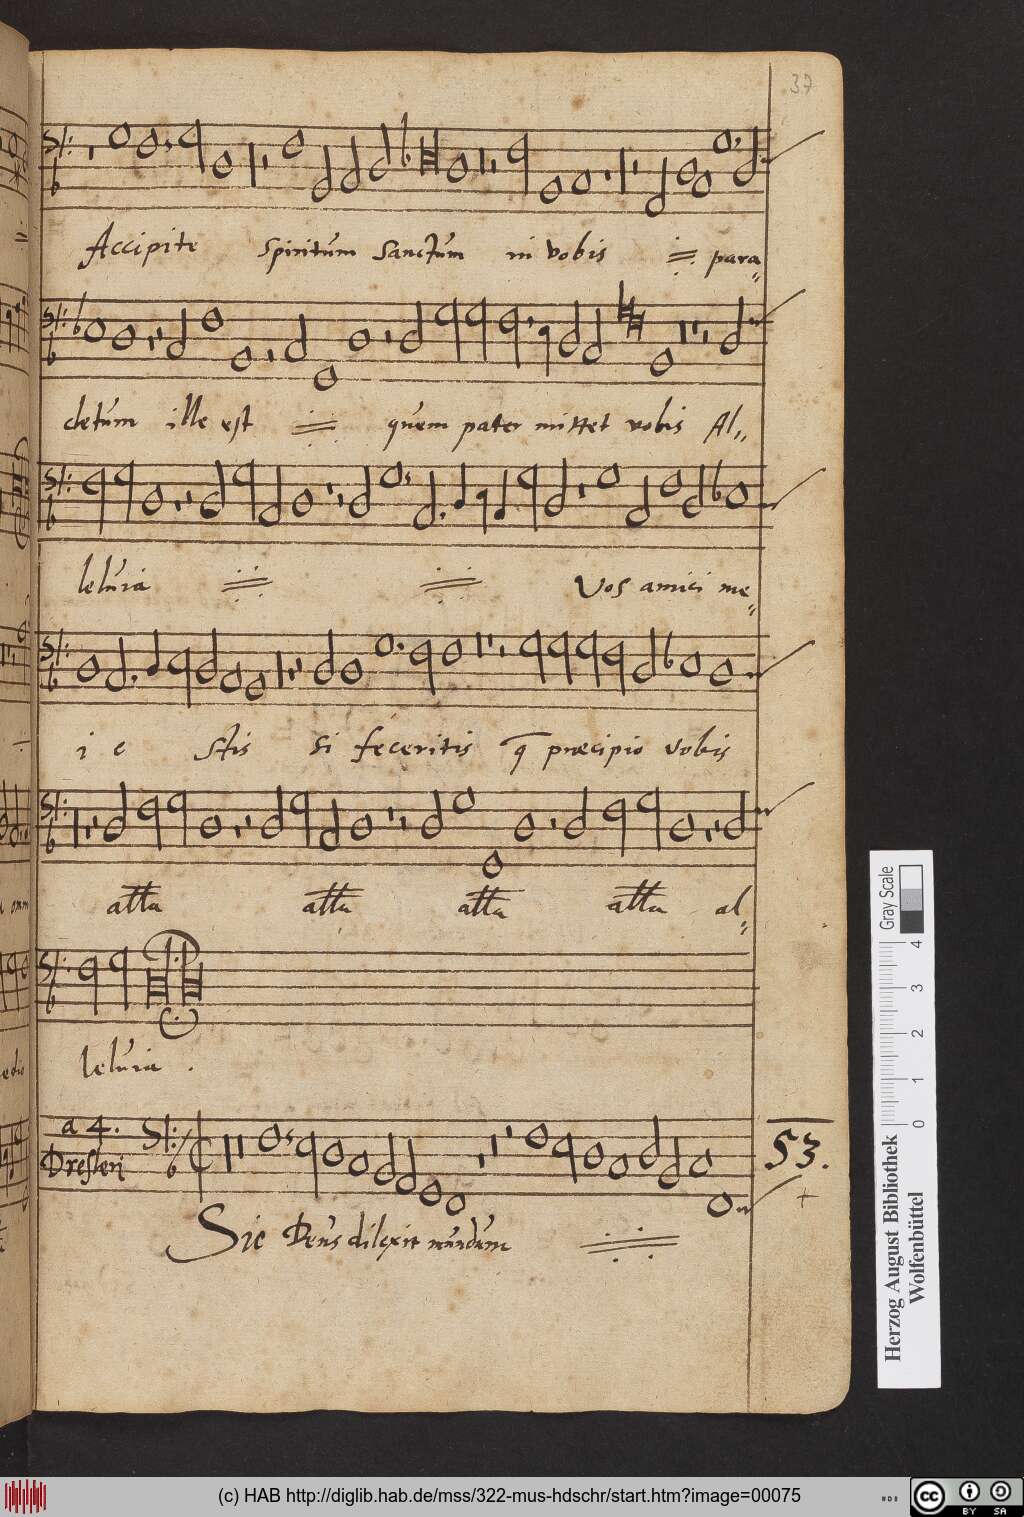 37
Accipite spiritum sanctum in vobis para
cletum ille est quem pater mittet vobis Al
leluia Vos amici me
i e stis si feceritis q praecipio vobis
alla alla alla alla al
leluia .
a 4.
Dresleri
53.
Sic Deus dilexit mundum
Gray Scale
0 1 2 3 4
Herzog August Bibliothek
Wolfenbüttel
(c) HAB http://diglib.hab.de/mss/322-mus-hdschr/start.htm?image=00075
cc BY SA